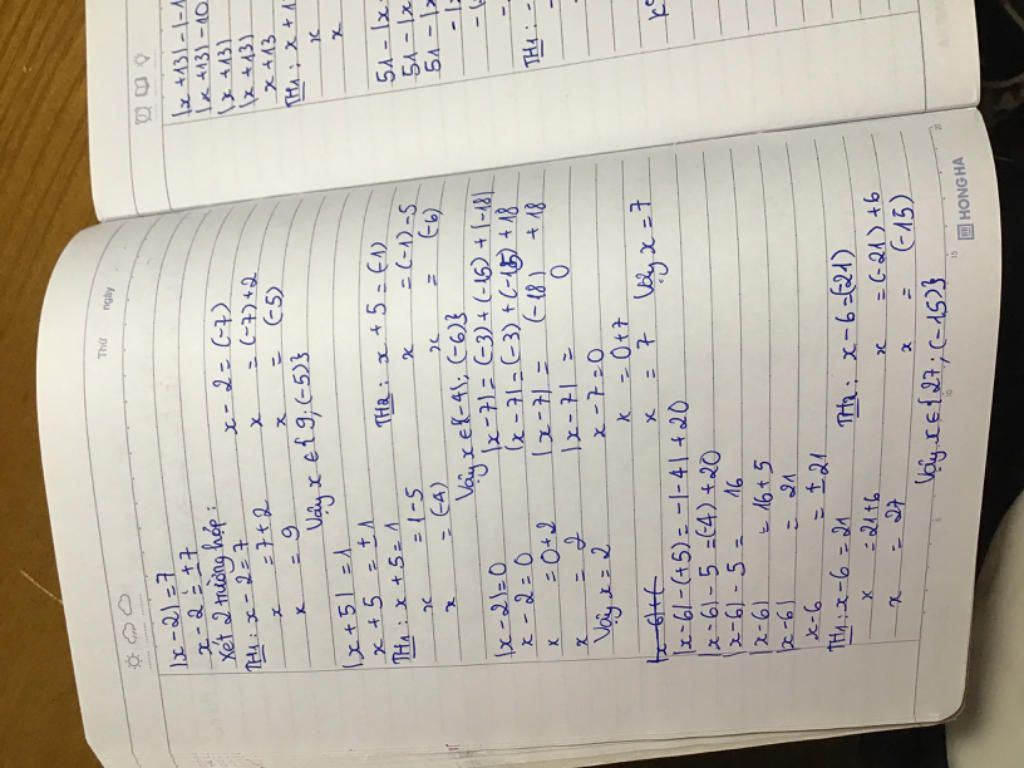 Thứ
ngày
|x-2|=7
x-2=±7
Xét 2 trường hợp:
TH1: x-2=7
x =7+2
x = 9
x-2=(-7)
x =(-7)+2
x = (-5)
Vậy x∈{9;(-5)}
|x+5|=1
x+5=±1
TH1: x+5=1
x =1-5
x =(-4)
TH2: x+5=(-1)
x =(-1)-5
x = (-6)
Vậy x∈{-4;(-6)}
|x-2|=0
x-2=0
x =0+2
x = 2
Vậy x=2
|x-7|=(-3)+(-15)+|-18|
|x-7|=(-3)+(-15)+18
|x-7|= (-18) +18
|x-7|= 0
x-7=0
x =0+7
x = 7 Vậy x=7
|x-6|-(+5)=-|-4|+20
|x-6|-5=(-4)+20
|x-6|-5= 16
|x-6| =16+5
|x-6| = 21
x-6 =±21
TH1: x-6=21
x =21+6
x = 27
TH2: x-6=(-21)
x =(-21)+6
x = (-15)
Vậy x∈{27;(-15)}
HONG HA
|x+13|-|-1
|x+13|-10
|x+13|
|x+13|
x+13
TH1: x+1
x
x
51-|x
51-|x
51-|x
TH1: